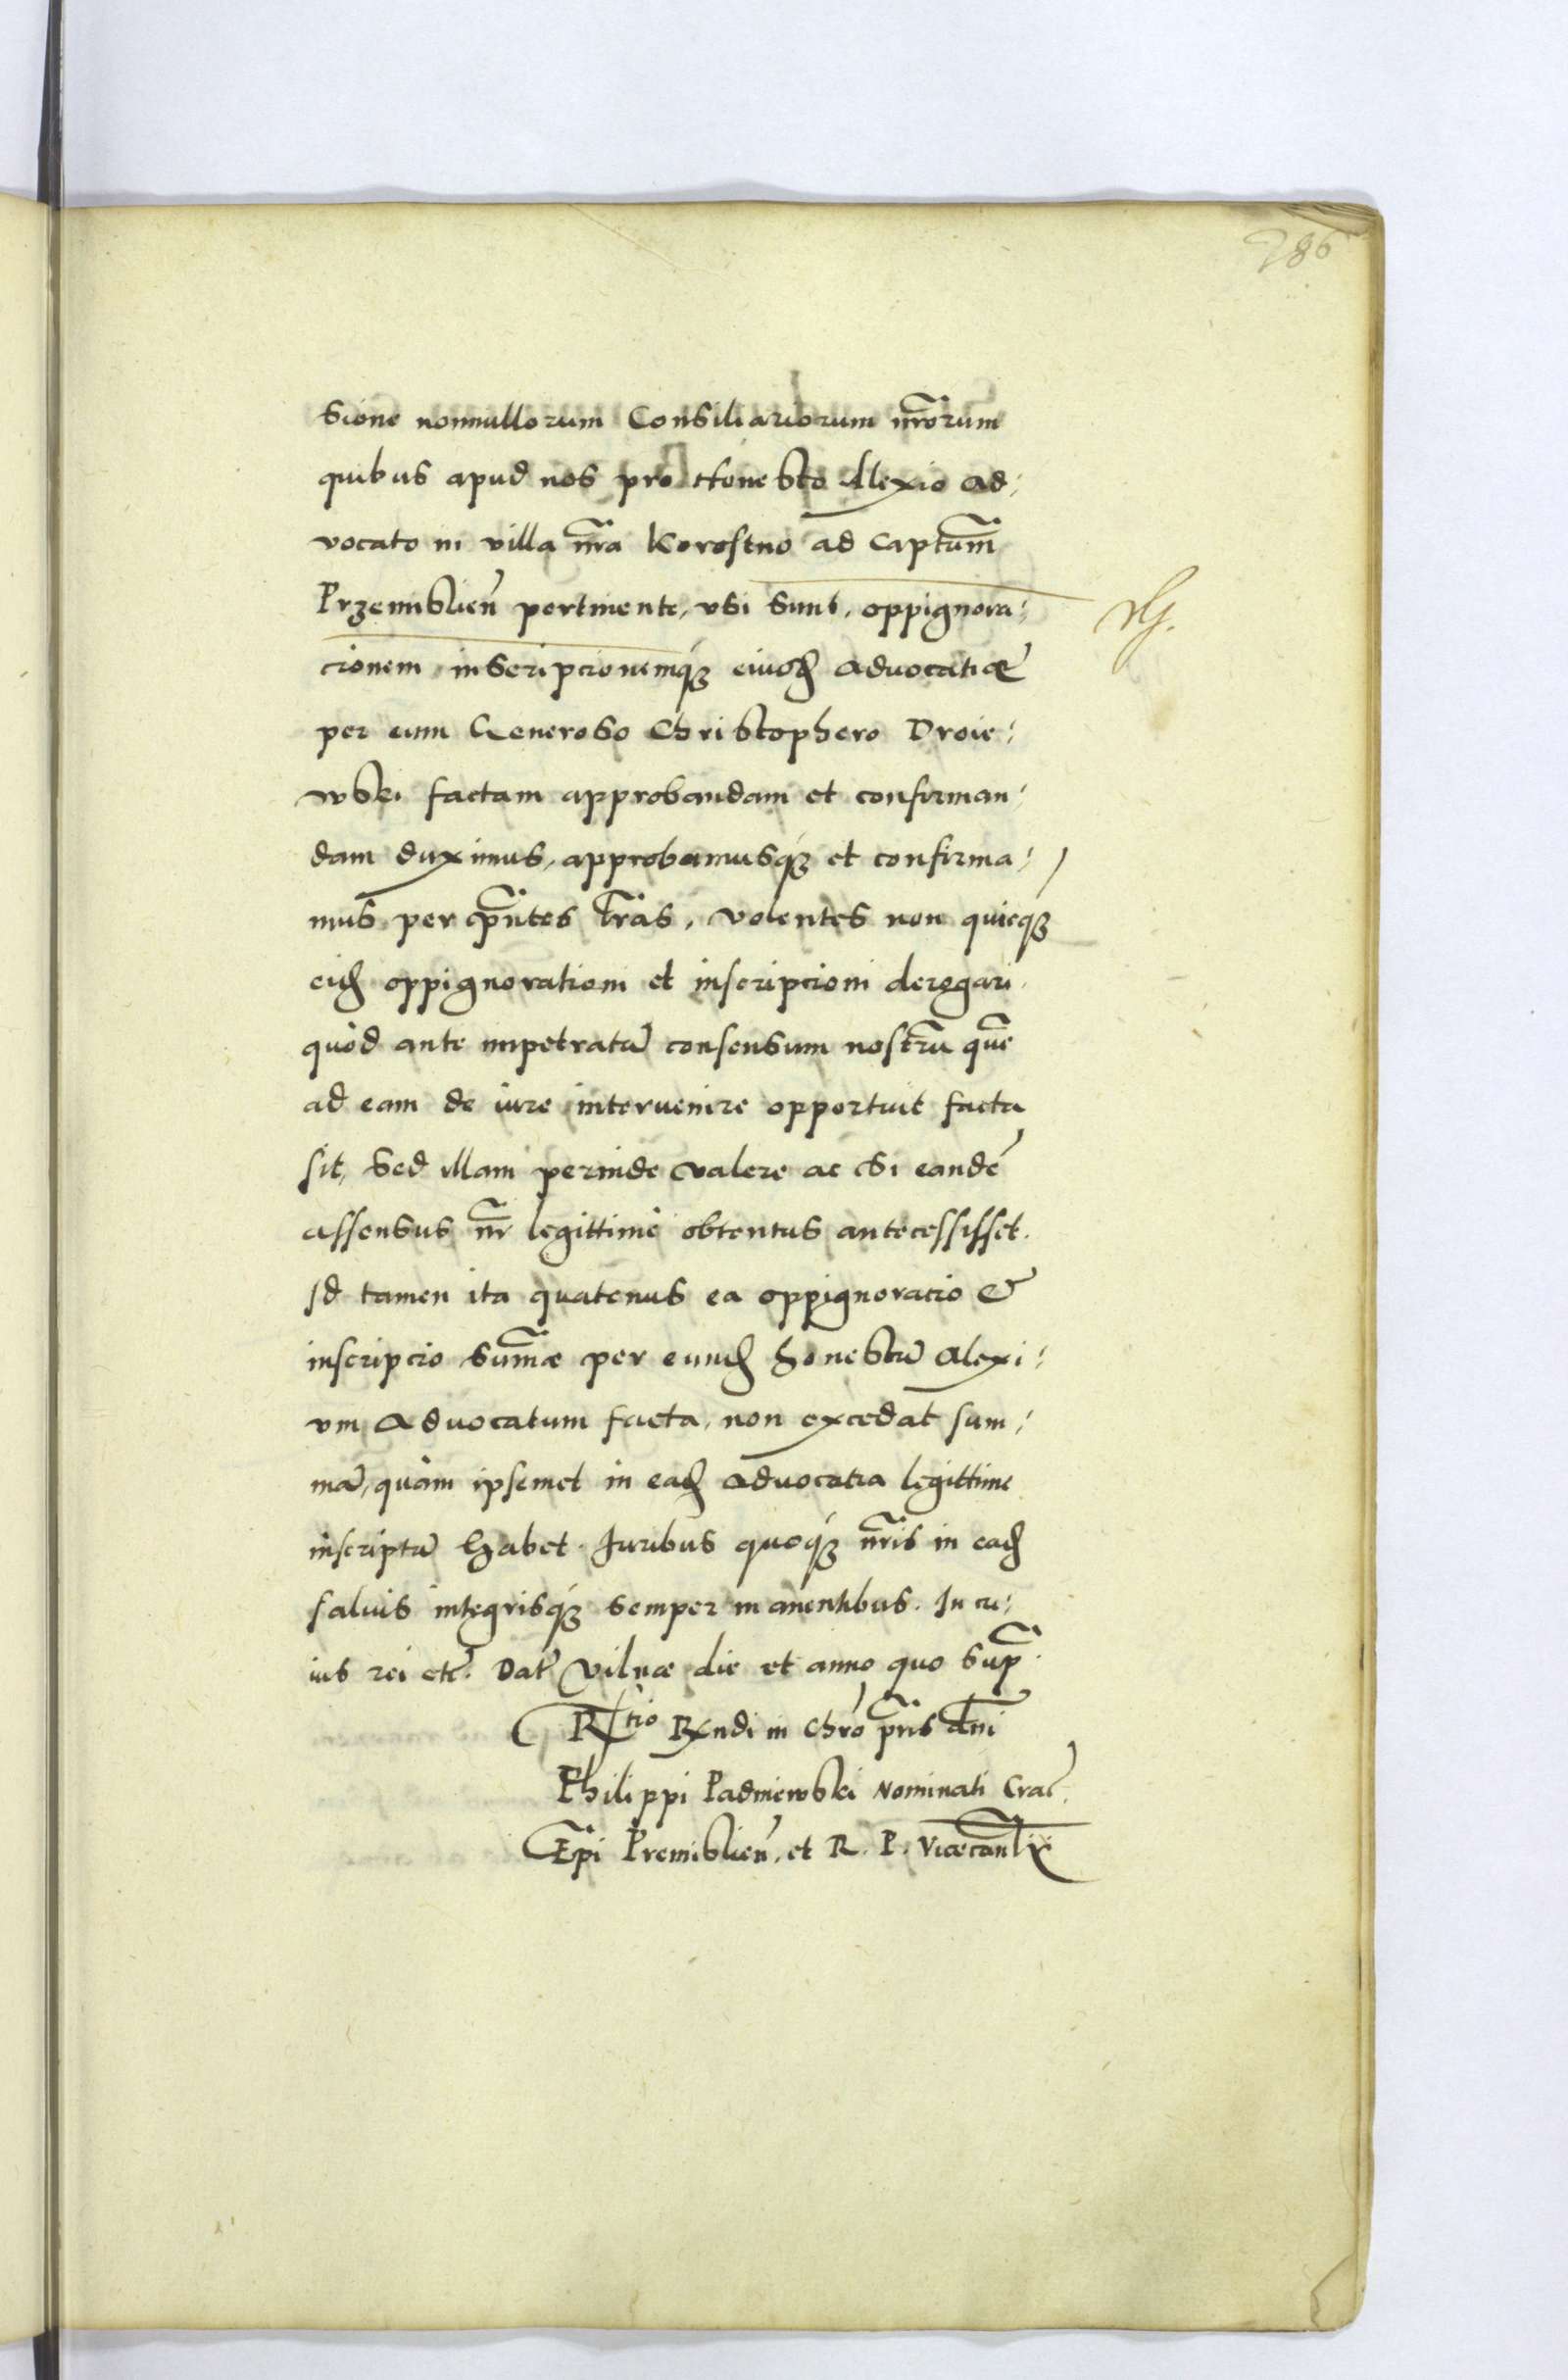 286
sione nonnullorum Consiliariorum nrorum
quibus apud nos pro Honesto Alexio ad:
vocato in villa nra Korostno ad Captum
Przemislien pertinente, usi sunt, oppignora:
cionem inscripcionemq́; eiusd advocatiæ
per eum Generoso Christophero Droie:
wski factam approbandam et confirman:
dam duximus, approbamusq́; et confirma:
mus per pntes lras, volentes non quicq;
eid oppignorationi et inscripcioni derogari
quòd ante impetratũ consensum nostru que
ad eam de iure intervenire opportuit facta
sit, sed illam perinde valere ac si eandẽ
assensus nr legittimè obtentus antecessisset.
sd tamen ita quatenus ea oppignoracio &
inscripcio sumæ per eund honestũ Alexi:
um Advocatum facta, non excedat sum:
mã, quàm ipsemet in ead advocatia legittime
inscriptã habet. Juribus quoq́; nris in ead
salvis integrisq́; semper manentibus. In cu:
ius rei etc. Dat Vilnæ die et anno quo sup.
Rtio Rndi in Chro pris dni
Philippi Padniewski Nominati Crac.
Epi Premislien, et R. P. Vicecanlr